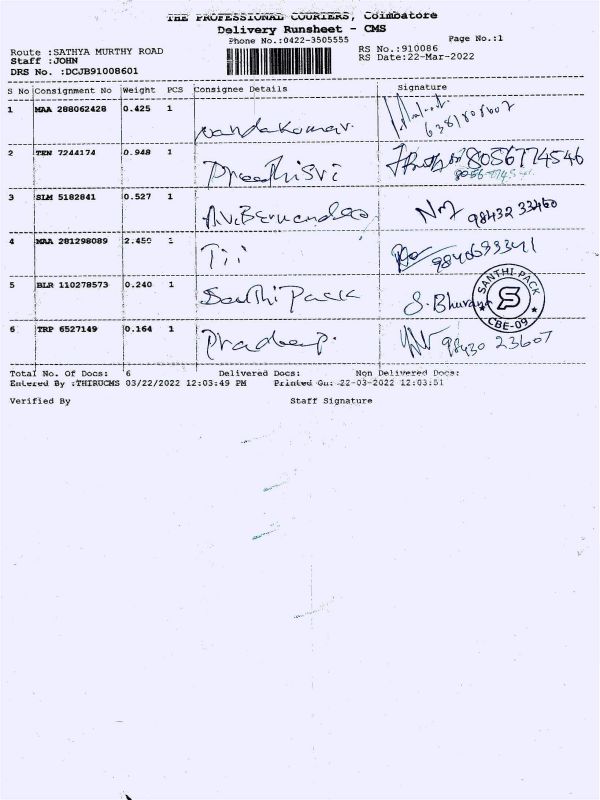 THE PROFESSIONAL COURIERS, Coimbatore
Delivery Runsheet - CMS
Phone No.:0422-3505555
Page No.:1
Route :SATHYA MURTHY ROAD
Staff :JOHN
DRS No. :DCJB91008601
RS No.:910086
RS Date:22-Mar-2022
S No Consignment No Weight PCS Consignee Details Signature
1 MAA 288062428 0.425 1 nandakumar. 6381808602
2 TEN 7244174 0.948 1 PreethiSri 8056774546
3 SLM 5182841 0.527 1 A.V.Bernandeoo 98432 33460
4 MAA 281298089 2.450 1 Tii 9840633341
5 BLR 110278573 0.240 1 Santhi Pack S. Bhuvana
SANTHI-PACK
S
CBE-09
6 TRP 6527149 0.164 1 Pradeep. 98430 23607
Total No. Of Docs: 6 Delivered Docs: Non Delivered Docs:
Entered By :THIRUCMS 03/22/2022 12:03:49 PM Printed On: 22-03-2022 12:03:51
Verified By Staff Signature